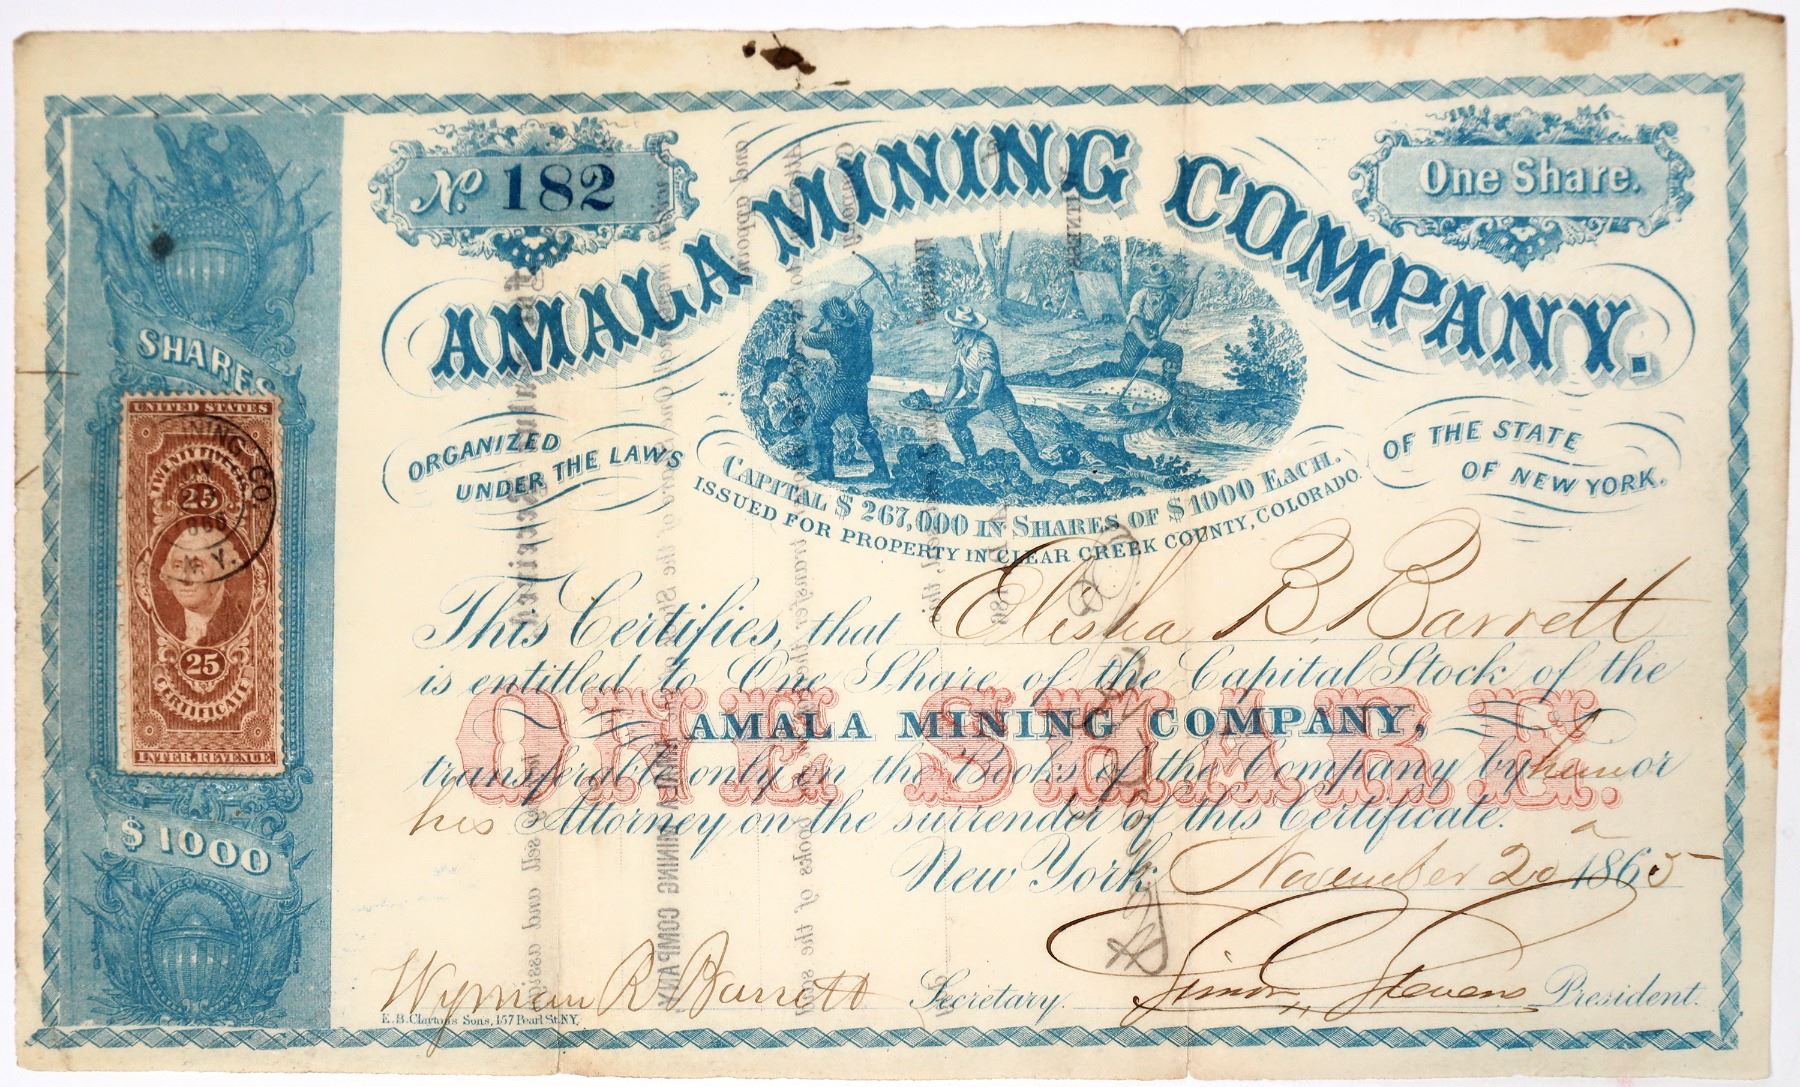 Nº 182
One Share.
AMALA MINING COMPANY.
ORGANIZED UNDER THE LAWS
OF THE STATE OF NEW YORK.
CAPITAL $ 267,000 IN SHARES OF $ 1000 EACH.
ISSUED FOR PROPERTY IN CLEAR CREEK COUNTY, COLORADO.
SHARES
UNITED STATES
TWENTY FIVE CTS.
25
MINING CO.
N.Y.
25
CERTIFICATE
INTER. REVENUE
$ 1000
This Certifies, that Elisha B. Barrett
is entitled to One Share of the Capital Stock of the
AMALA MINING COMPANY,
ONE SHARE.
transferable only on the Books of the Company by him or
his Attorney on the surrender of this Certificate.
New York, November 20 1865
Wyman R Barrett Secretary.
Simon Stevens President.
E. B. Clayton's Sons, 157 Pearl St. N.Y.